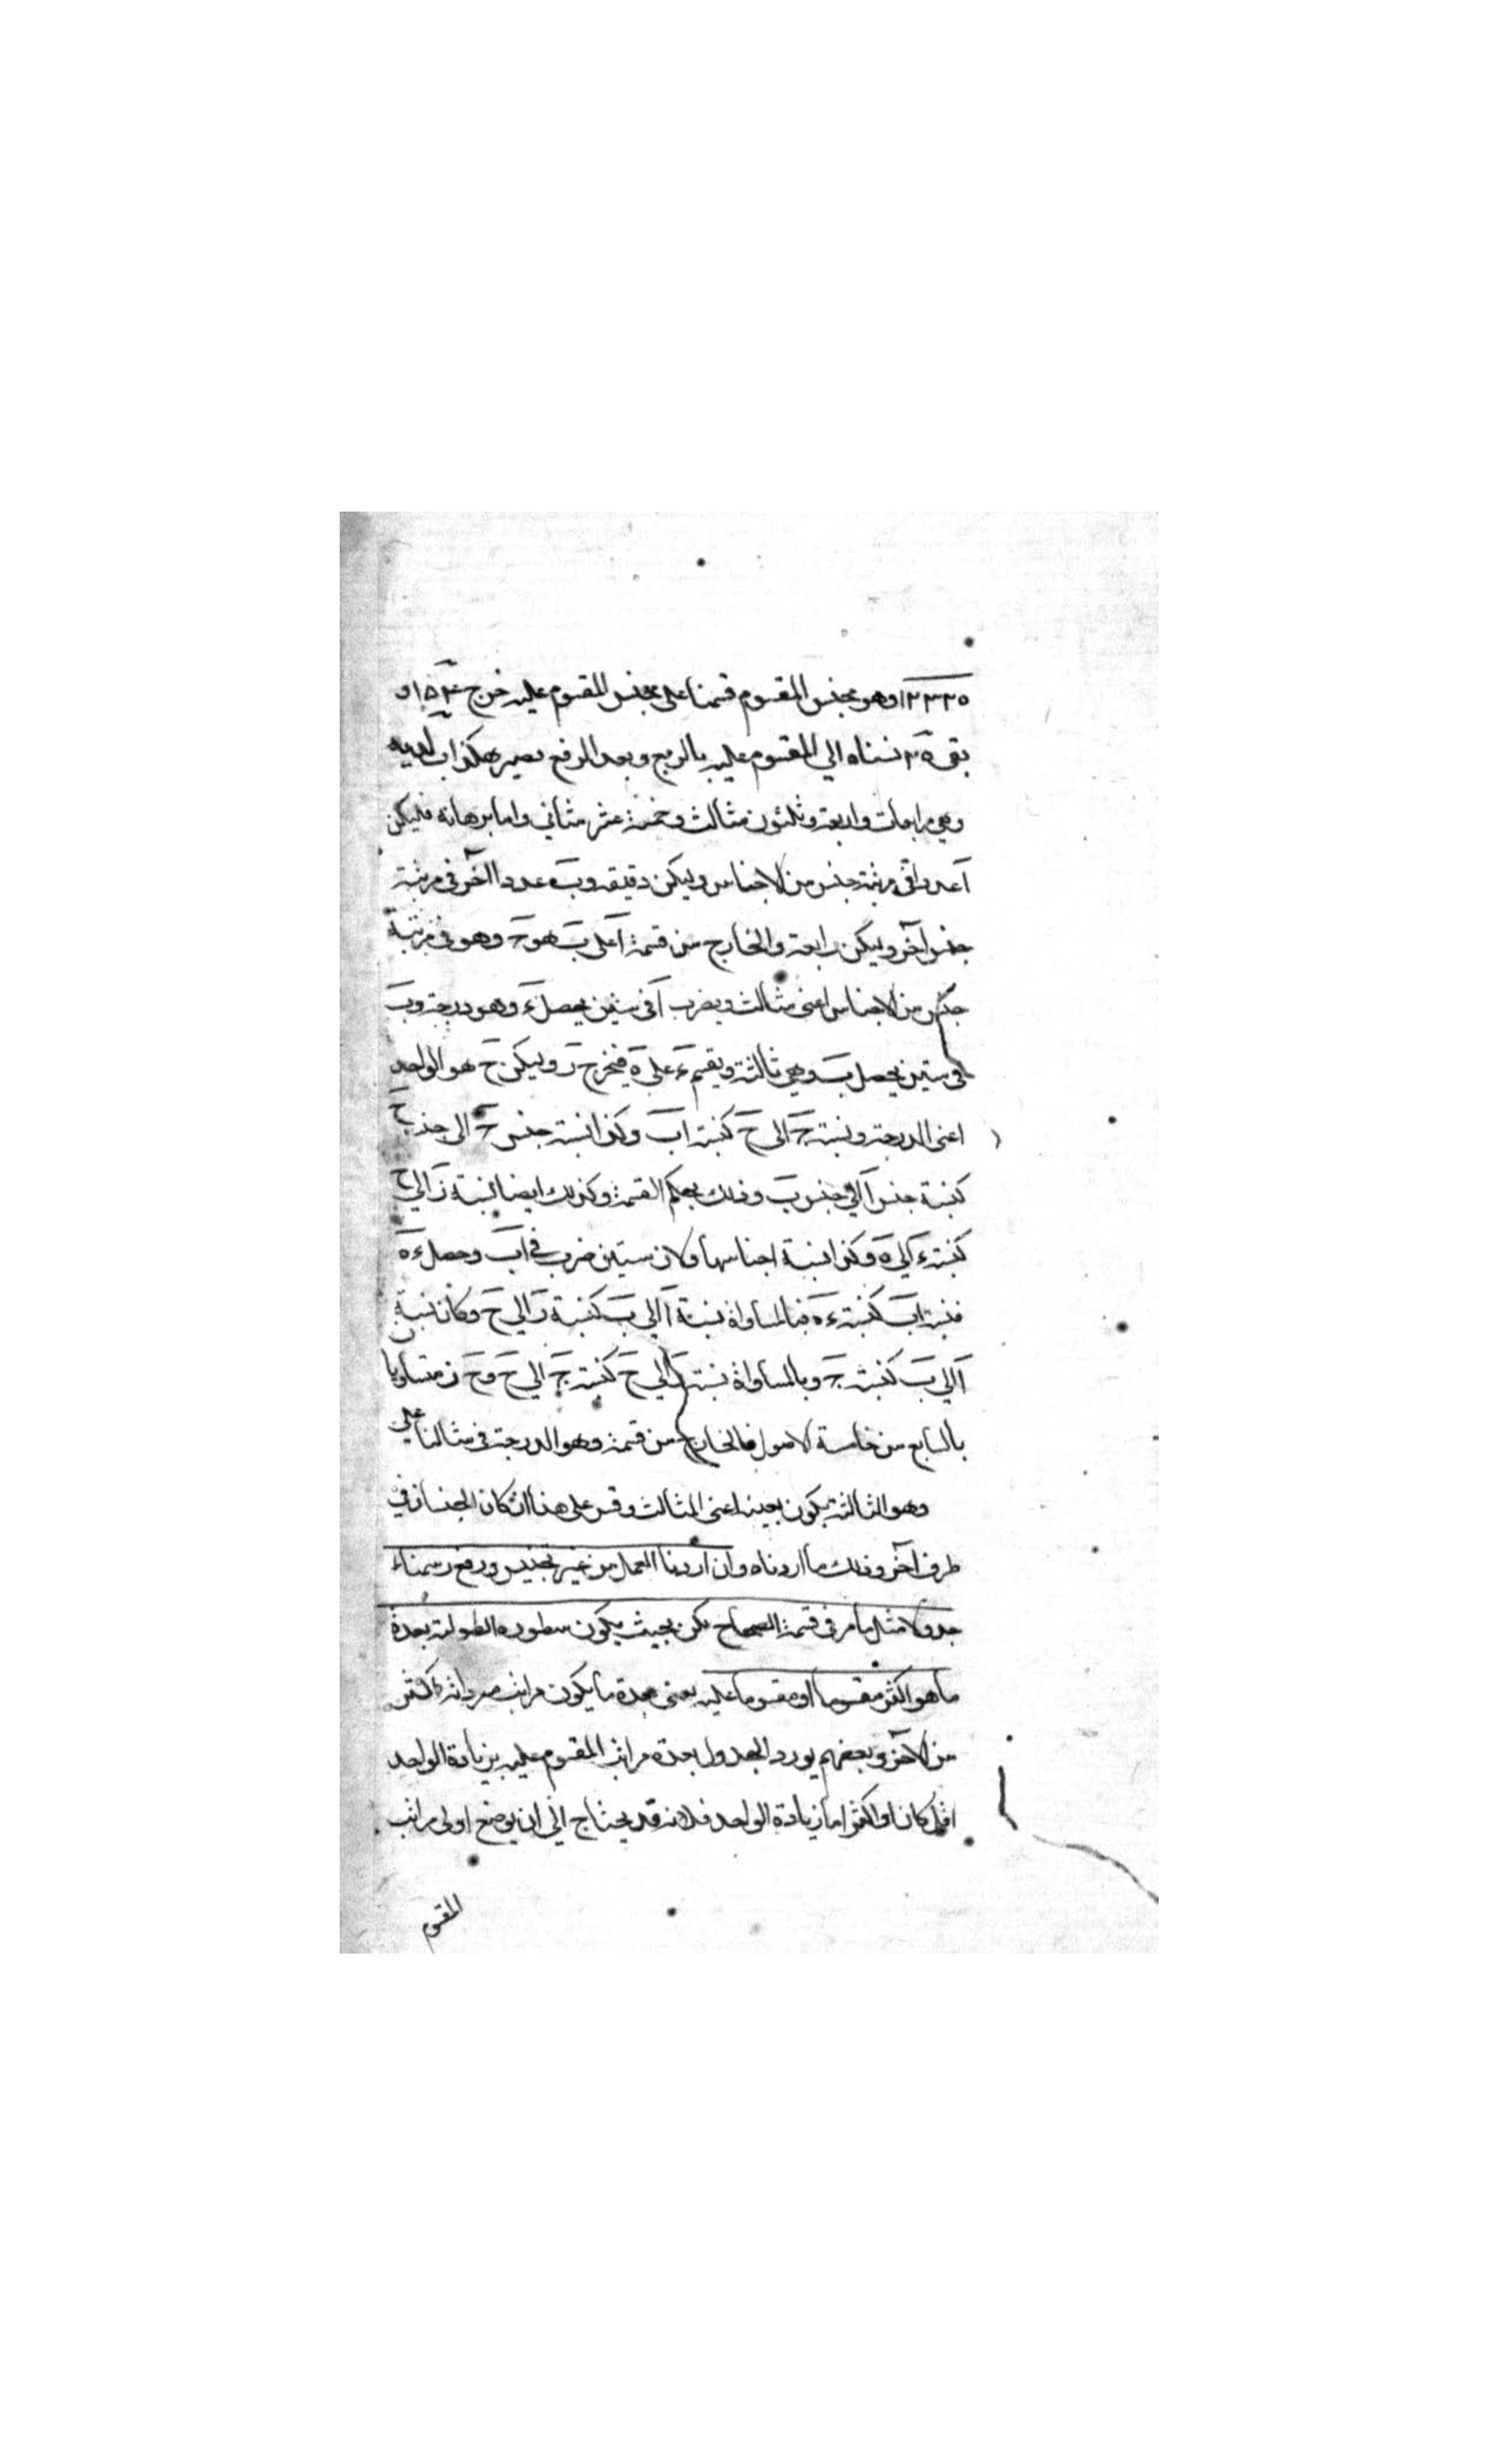 ١٢٣٣٥ وهو مجنس المقسوم قسمنا على مجنس المقسوم عليه خرج ١٥٤ و
بقى ١٥ نسبناه الي المقسوم عليه بالربع وبعد الرفع يصير هكذا ب لد يه
وهي مرابعات واربعة وثلثون مثالث وخمسة عشر مثاني واما برهانه فليكن
آ عددا في مرتبة جنس من الاجناس وليكن دقيقه وبَ عددا آخر في مرتبة
جنس آخر وليكن رابعة والخارج من قسمة آ على بَ هو حَ وهو في مرتبة
جنس من الاجناس اعنى مثالث ويضرب آ في ستين يحصل ءَ وهو درجة وبَ
في ستين يحصل بَ وهي ثالثة ويقسم ءَ على هَ فيخرج زَ وليكن حَ هو الواحد
اعنى الدرجة ونسبة جَ الى حَ كنسبة ابَ وكذا نسبة جنس جَ الى جنس حَ
كنسبة جنس آ الي جنس بَ وذلك بحكم القسمة وكذلك ايضا نسبة زَ الي حَ
كنسبة ءَ الي هَ وكذا نسبة اجناسها ولان ستين ضرب في ابَ وحصل ءَ هَ
فنسبة ابَ كنسبة ءَ هَ فبالمساواة نسبة آ الي بَ كنسبة زَ الي حَ وكان نسبة
آ الي بَ كنسبة جَ وبالمساواة نسبة زَ الي حَ كنسبة جَ الي حَ وحَ زَ متساويا
بالسابع من خامسة الاصول فالخارج من قسمة وهو الدرجة في مثالنا علي
وهو الثالثة يكون بعينه اعنى المثالث وقس على هذا ان كان الجنسان في
طرف آخر وذلك ما اردناه وان اردنا العمل من غير تجنيس ورفع رسمناء
جدولا مثل ما مر في قسمة الصحاح لكن بحيث يكون سطوره الطولية بعدة
ما هو اكثر مقسوما او مقسوما عليه يعنى بعدة ما يكون مراتب مفرداته اكثر
من الآخر وبعضهم يورد الجدول بعدة مراتب المقسوم عليه بزيادة الواحد
اقل كان او اكثر اما زيادة الواحد فلانه قد يحتاج الي ان يوضع اولى مراتب
المقسوم